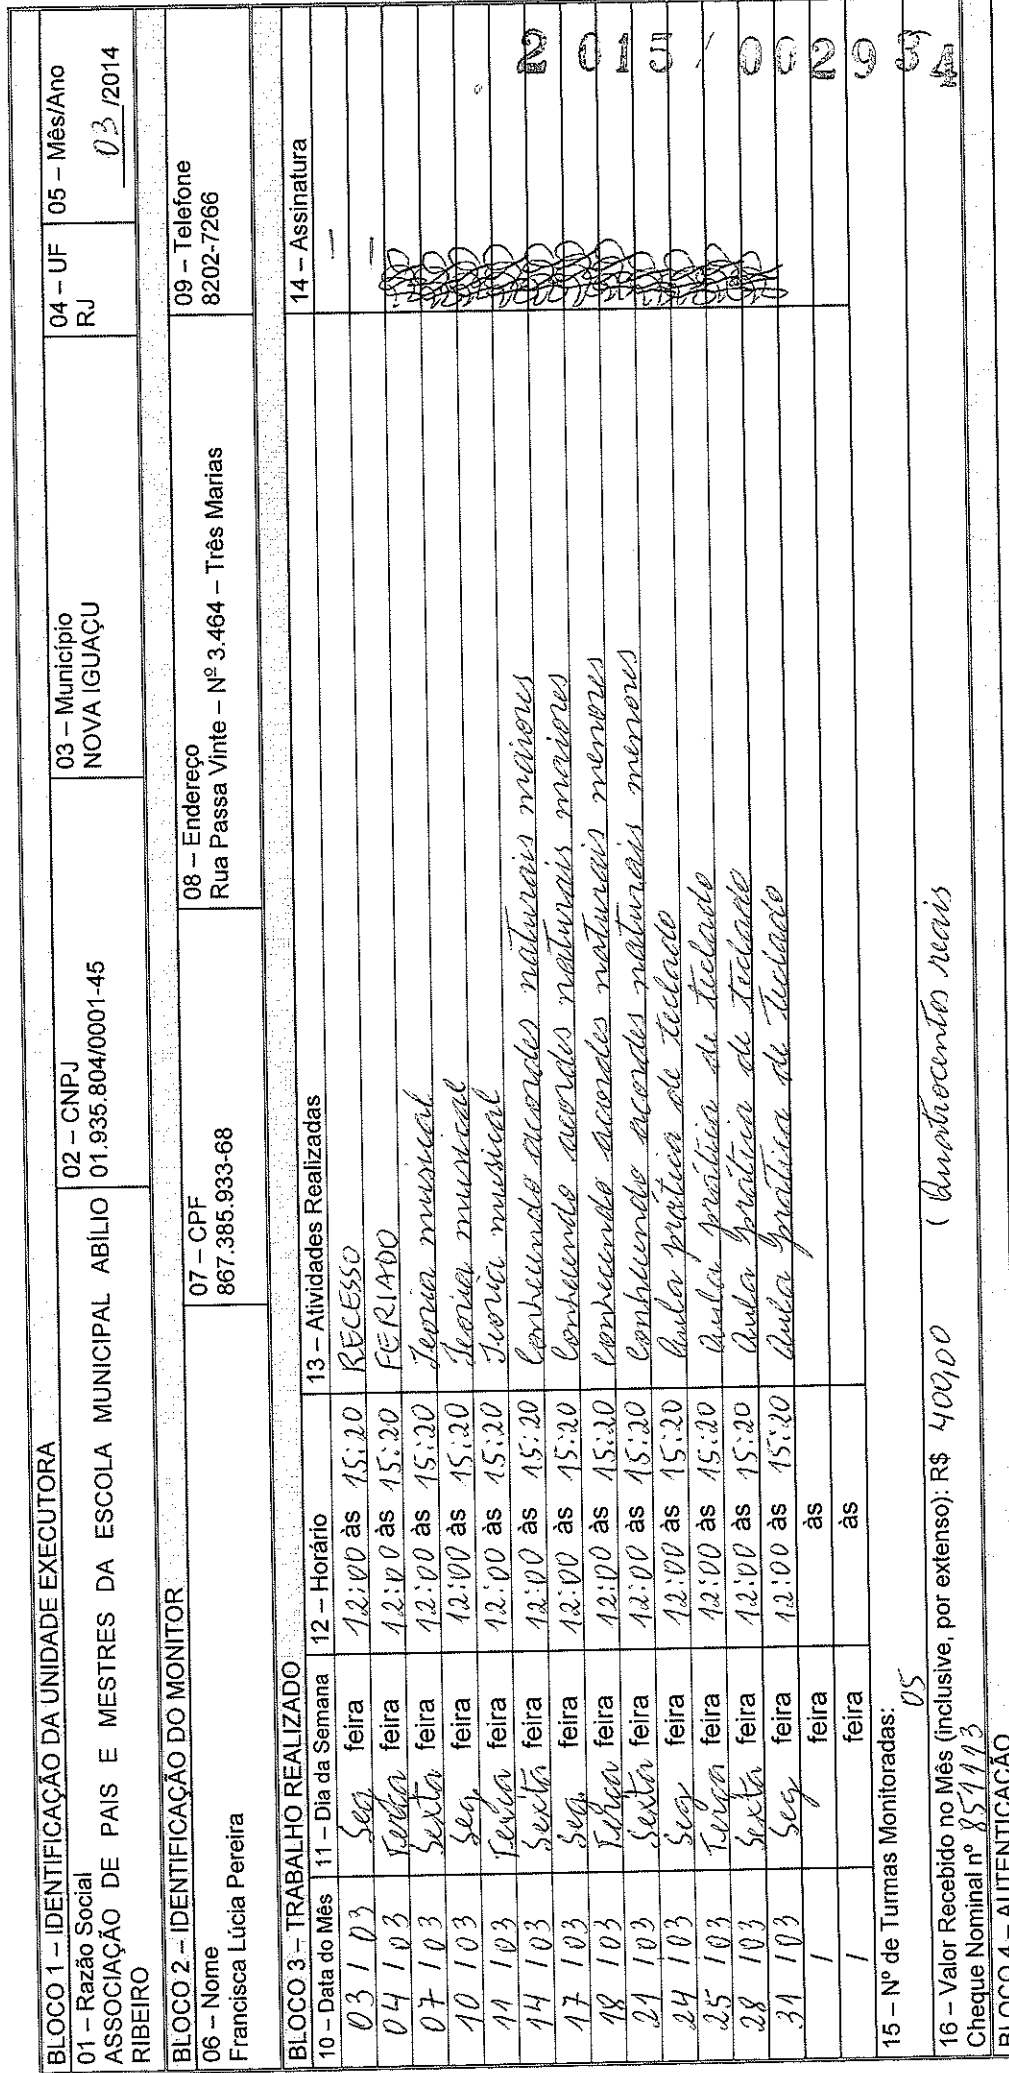 BLOCO 1 – IDENTIFICAÇÃO DA UNIDADE EXECUTORA
01 – Razão Social
ASSOCIAÇÃO DE PAIS E MESTRES DA ESCOLA MUNICIPAL ABÍLIO
RIBEIRO
02 – CNPJ
01.935.804/0001-45
03 – Município
NOVA IGUAÇU
04 – UF
RJ
05 – Mês/Ano
03/2014
BLOCO 2 – IDENTIFICAÇÃO DO MONITOR
06 – Nome
Francisca Lúcia Pereira
07 – CPF
867.385.933-68
08 – Endereço
Rua Passa Vinte – Nº 3.464 – Três Marias
09 – Telefone
8202-7266
BLOCO 3 – TRABALHO REALIZADO
10 – Data do Mês 11 – Dia da Semana 12 – Horário 13 – Atividades Realizadas 14 – Assinatura
03 / 03 Seg feira 12:00 às 15:20 RECESSO —
04 / 03 Terça feira 12:00 às 15:20 FERIADO —
07 / 03 Sexta feira 12:00 às 15:20 Teoria musical
10 / 03 Seg. feira 12:00 às 15:20 Teoria musical
11 / 03 Terça feira 12:00 às 15:20 Teoria musical
14 / 03 Sexta feira 12:00 às 15:20 Conhecendo acordes naturais maiores
17 / 03 Seg. feira 12:00 às 15:20 Conhecendo acordes naturais maiores
18 / 03 Terça feira 12:00 às 15:20 Conhecendo acordes naturais menores
21 / 03 Sexta feira 12:00 às 15:20 Conhecendo acordes naturais menores
24 / 03 Seg feira 12:00 às 15:20 Aula prática de teclado
25 / 03 Terça feira 12:00 às 15:20 Aula prática de teclado
28 / 03 Sexta feira 12:00 às 15:20 Aula prática de teclado
31 / 03 Seg feira 12:00 às 15:20 Aula prática de Teclado
/ feira às
/ feira às
2015/002934
15 – Nº de Turmas Monitoradas: 05
16 – Valor Recebido no Mês (inclusive, por extenso): R$ 400,00 ( Quatrocentos reais
Cheque Nominal nº 851113
BLOCO 4 – AUTENTICAÇÃO